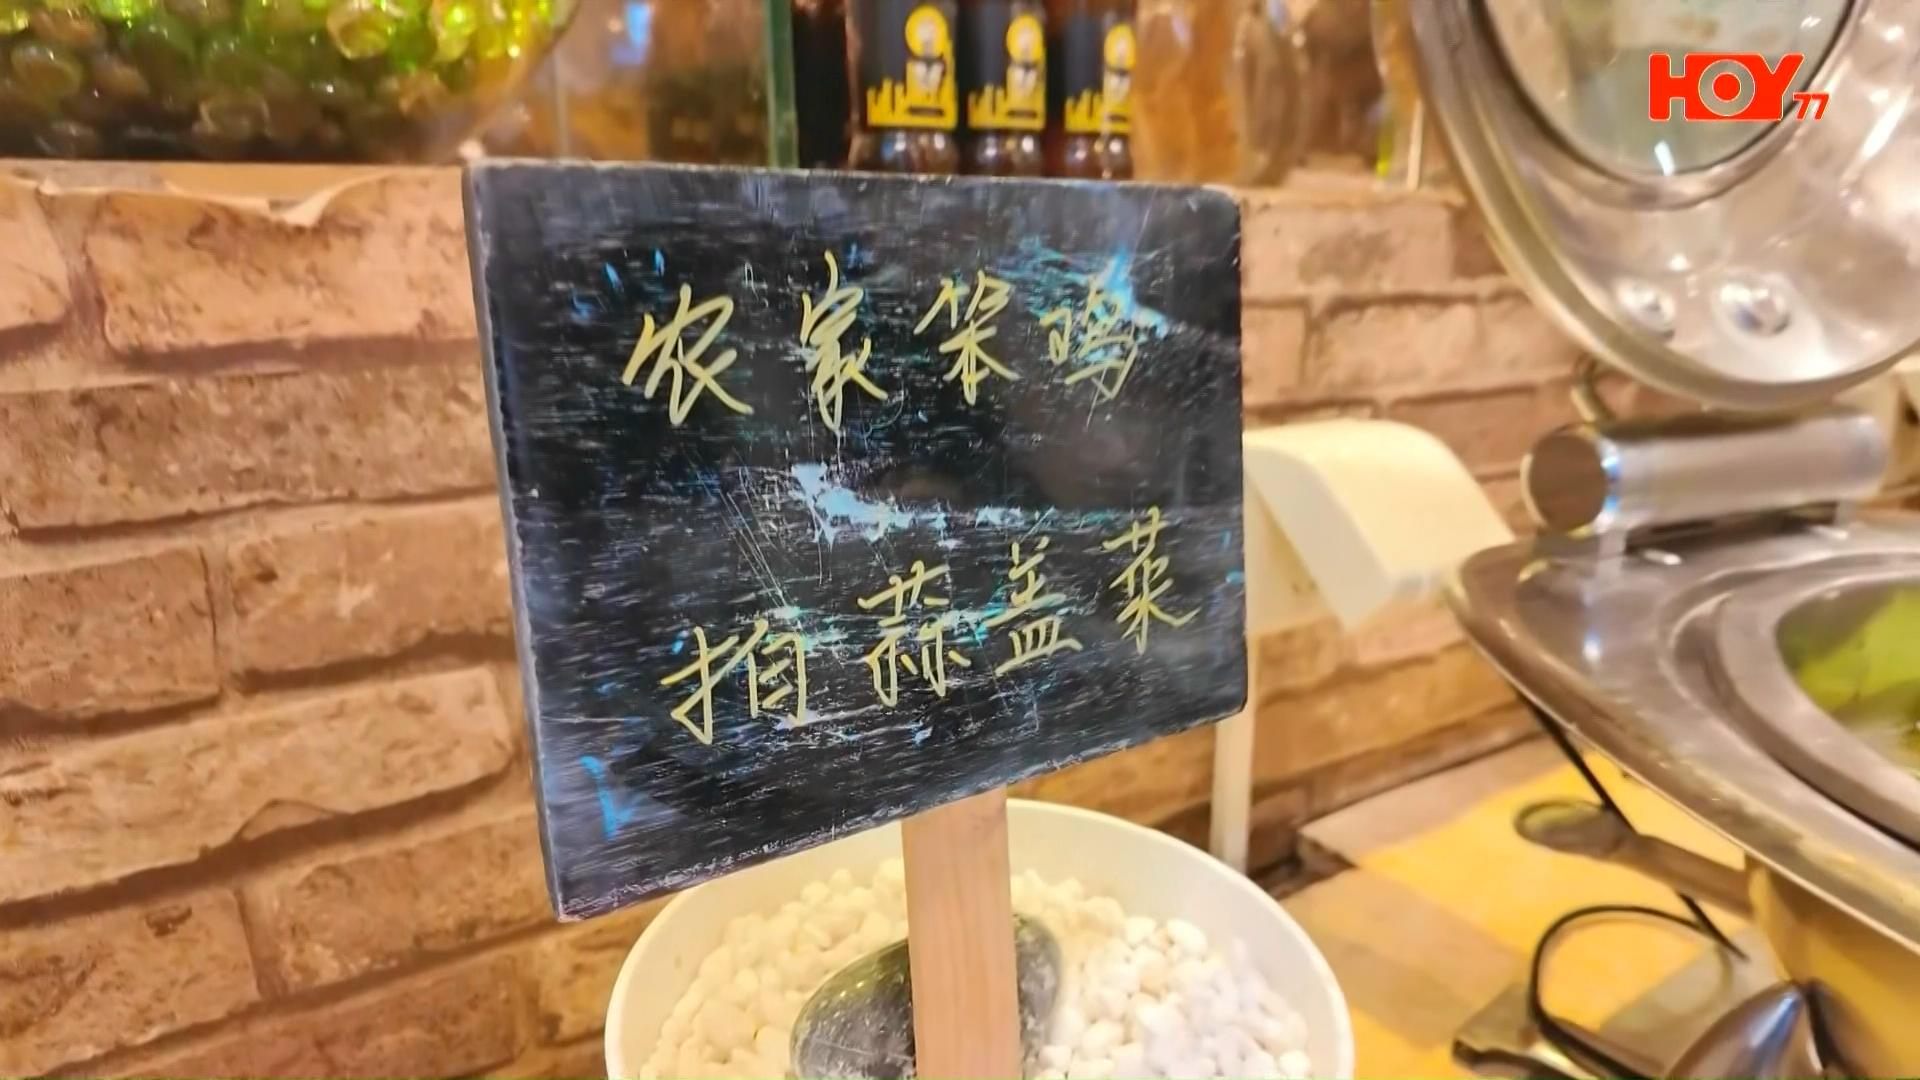 HOY 77
农家笨鸡
拍蒜盖菜